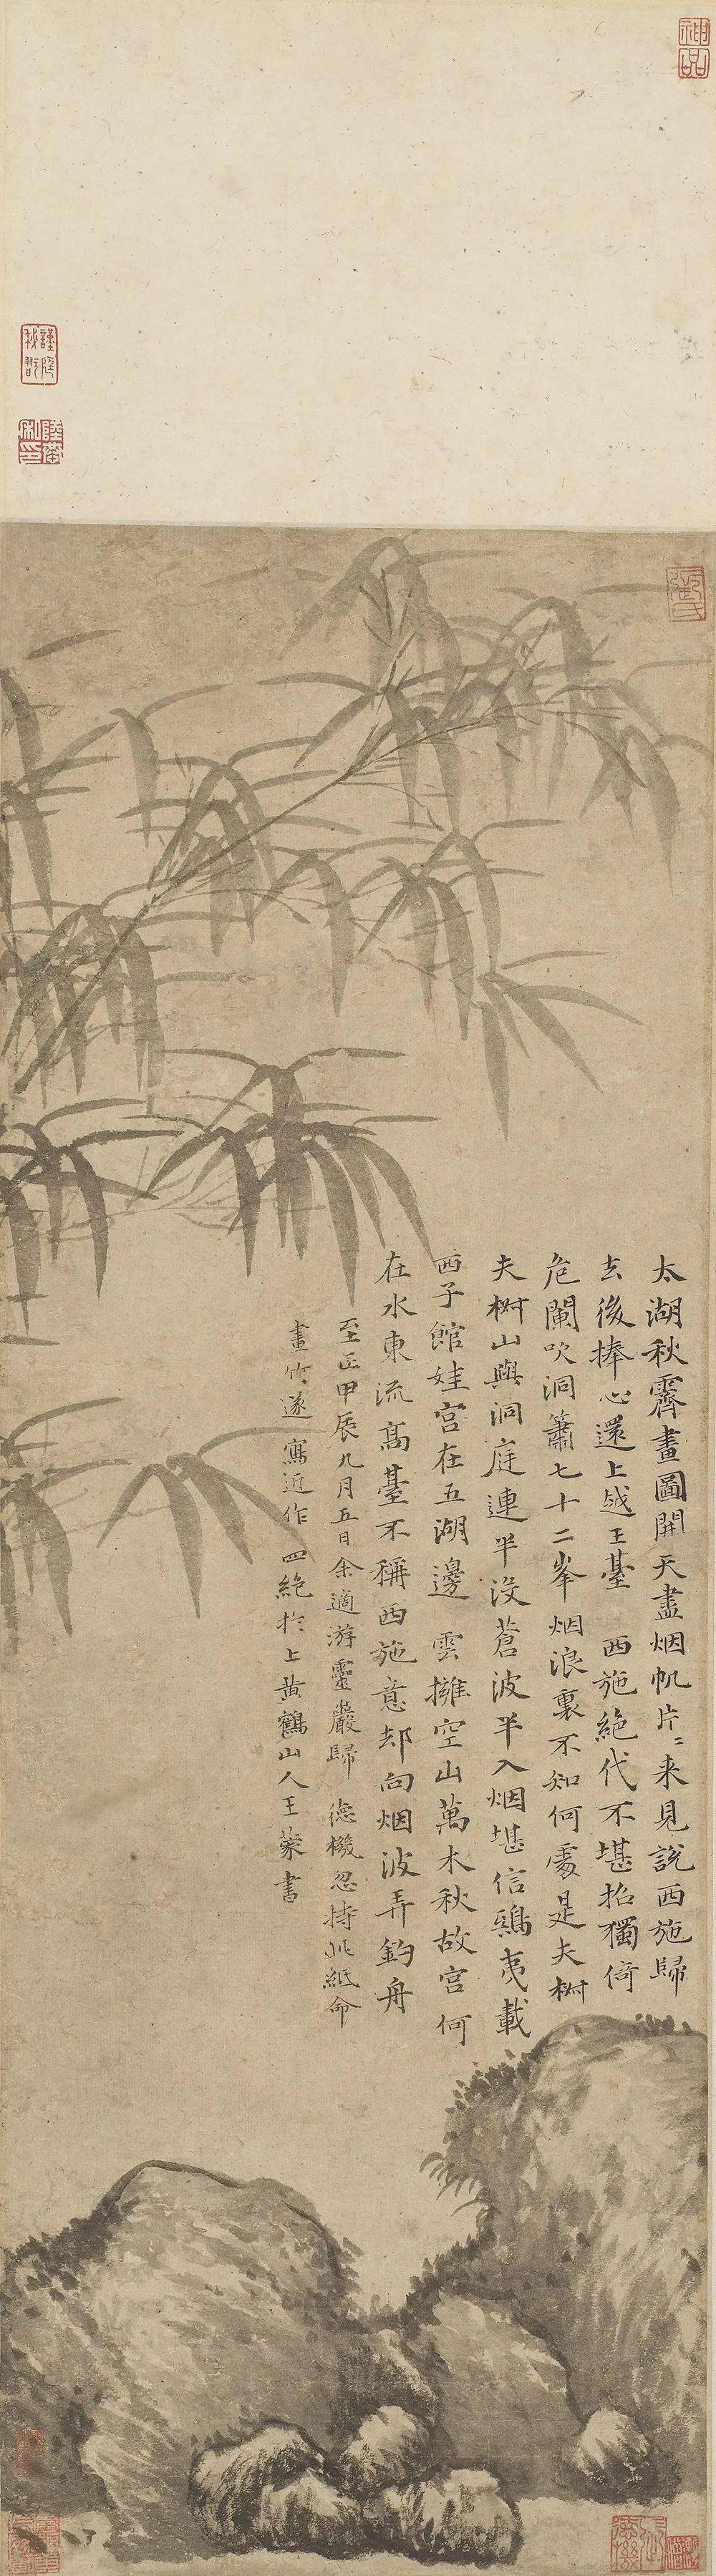 神品
太湖秋霽畫圖開天盡烟帆片〻来見說西施歸
去後捧心還上越王臺 西施絕代不堪招獨倚
危闌吹洞簫七十二峯烟浪裏不知何處是夫椒
夫椒山與洞庭連半没蒼波半入烟堪信鴟夷載
西子館娃宮在五湖邊 雲擁空山萬木秋故宮何
在水東流高臺不稱西施意却向烟波弄釣舟
至正甲辰九月五日余適游靈巖歸 德機忽持此紙命
畫竹遂寫近作四絕於上黄鶴山人王蒙書